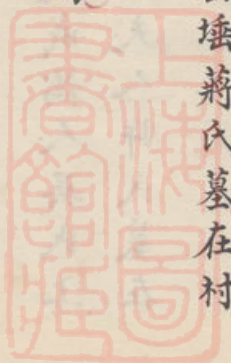 埵蔣氏墓在村
上海圖
書館藏